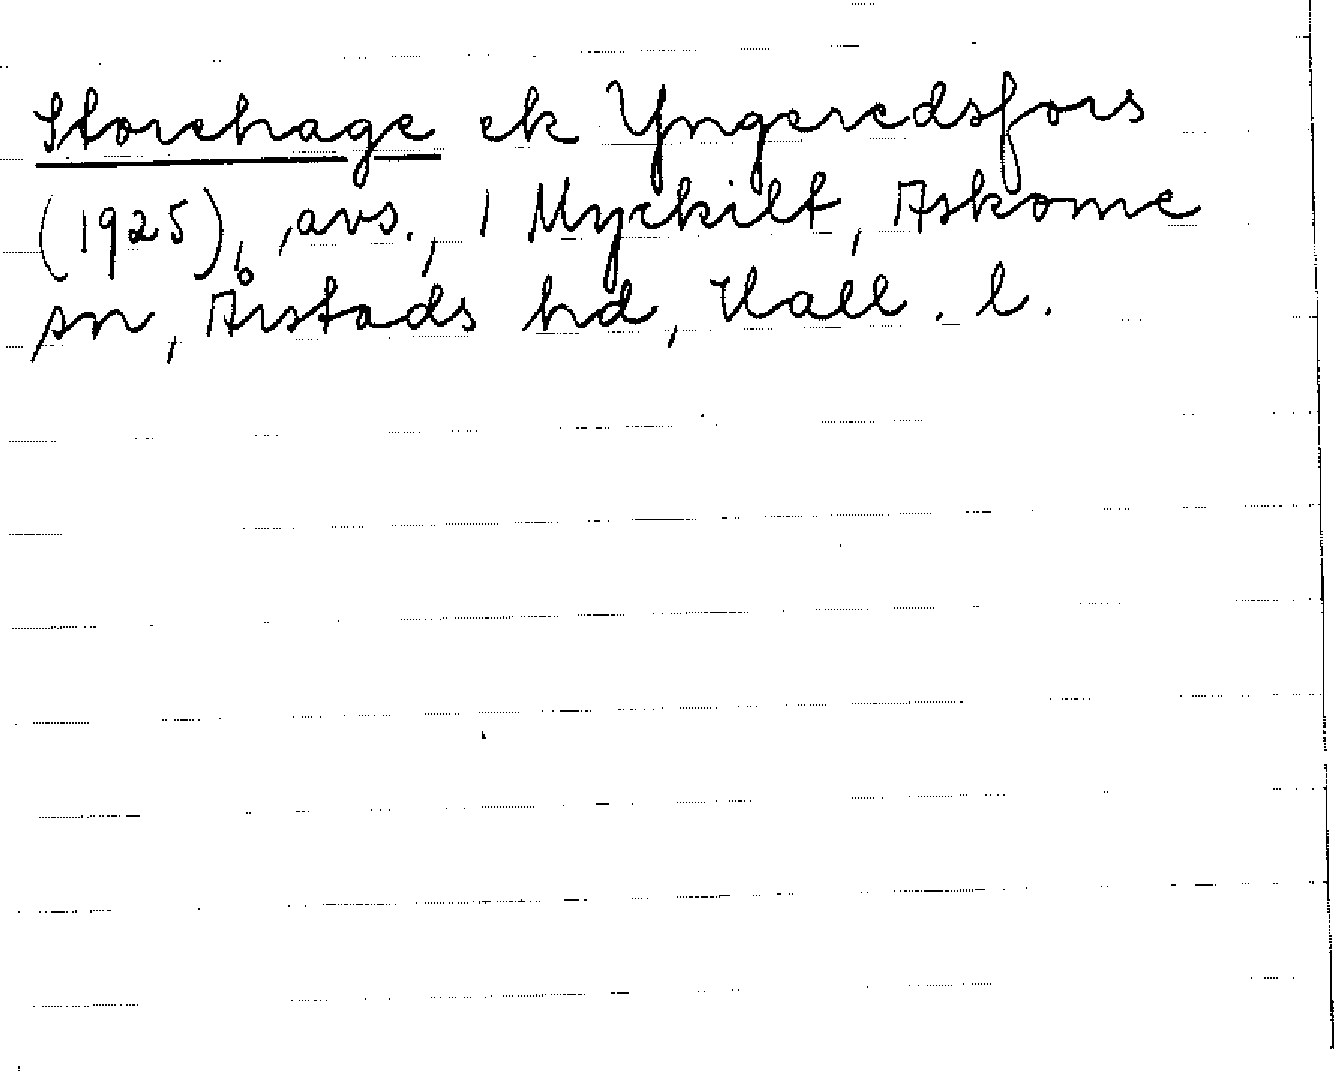 Storehage ek Yngeredsfors
(1925), avs., 1 Myckilt, Askome
sn, Årstads hd, Hall. l.